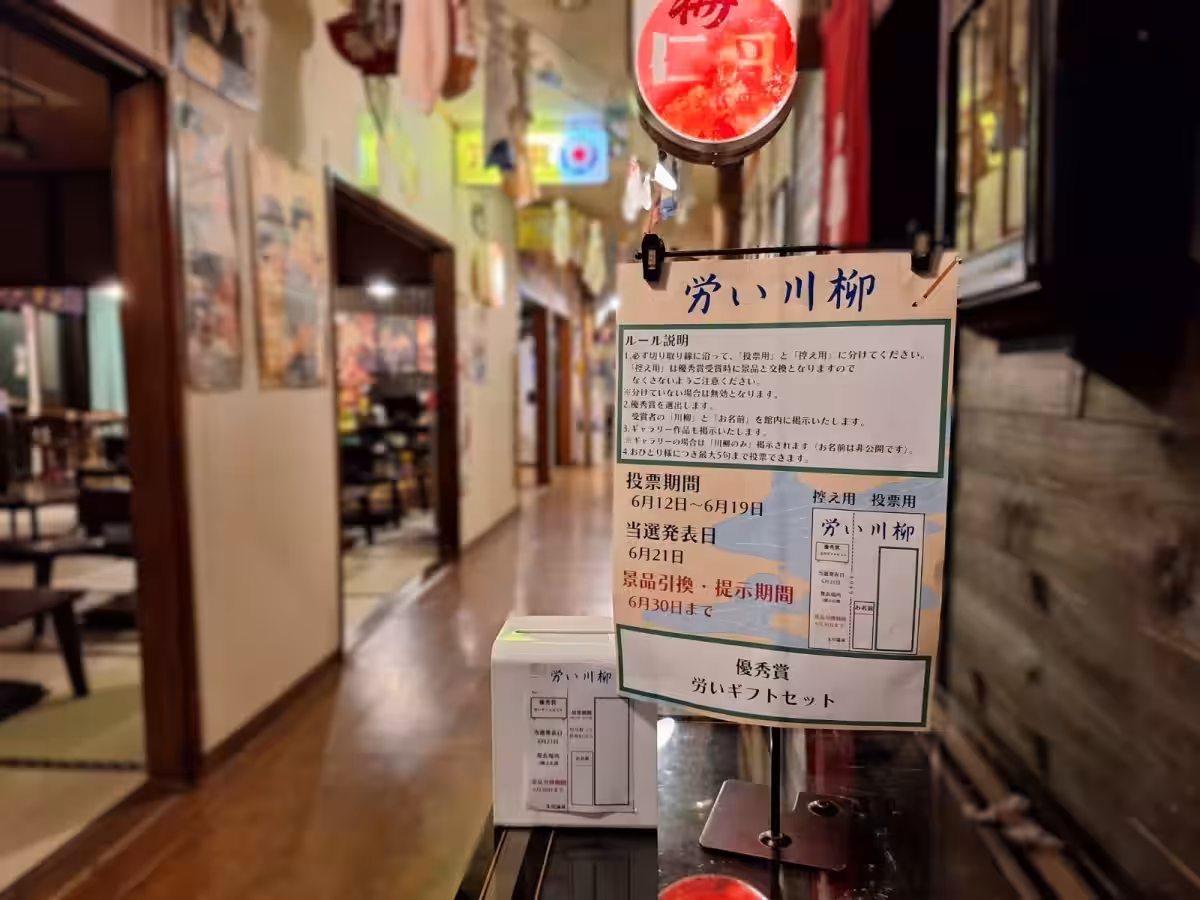 梅
仁丹
労い川柳
ルール説明
1.必ず切り取り線に沿って、「投票用」と「控え用」に分けてください。
「控え用」は優秀賞受賞時に景品と交換となりますので
なくさないようご注意ください。
※分けていない場合は無効となります。
2.優秀賞を選出します。
受賞者の「川柳」と「お名前」を館内に掲示いたします。
3.ギャラリー作品も掲示いたします。
※ギャラリーの場合は「川柳のみ」掲示されます（お名前は非公開です）。
4.おひとり様につき最大5句まで投票できます。
投票期間
6月12日〜6月19日
当選発表日
6月21日
景品引換・提示期間
6月30日まで
控え用 投票用
労い川柳
優秀賞
当選発表日
6月21日
お名前
6月30日まで
優秀賞
労いギフトセット
労い川柳
優秀賞
当選発表日
6月21日
景品引換期間
6月30日まで